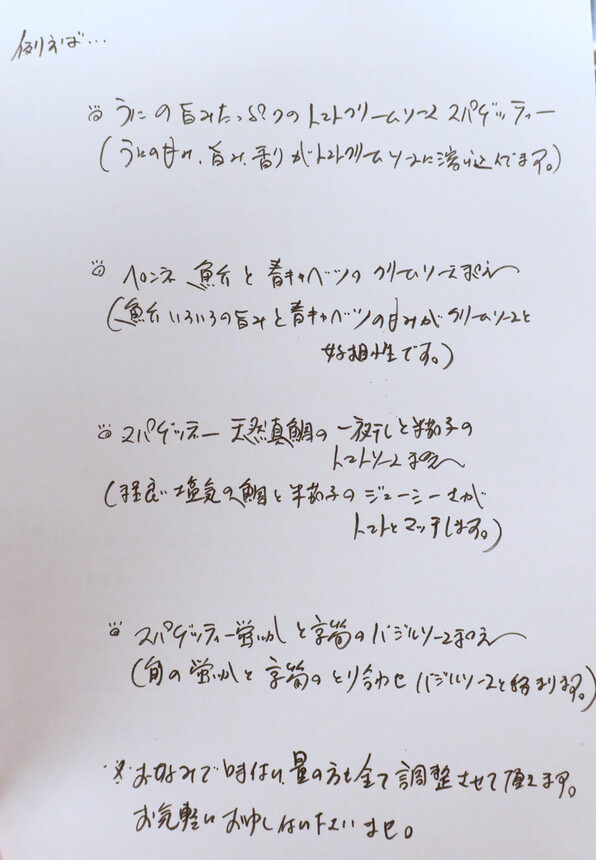 例えば…
うにの旨みたっぷりのトマトクリームソース スパゲッティー
(うにの甘み、旨み、香りがトマトクリームソースに溶け込んでます。)
ペンネ 魚介と春キャベツのクリームソースまぜ
(魚介いろいろの旨みと春キャベツの甘みがクリームソースと
好相性です。)
スパゲッティー 天然真鯛の一夜干しと米茄子の
トマトソースまぜ
(程良い塩気の鯛と米茄子のジューシーさが
トマトとマッチします。)
スパゲッティー蛍いかと京筍のバジルソースまぜ
(旬の蛍いかと京筍のとり合わせ バジルソースと絡まります。)
※お好みで味付け、量の方も全て調整させて頂きます。
お気軽にお申し付けくださいませ。